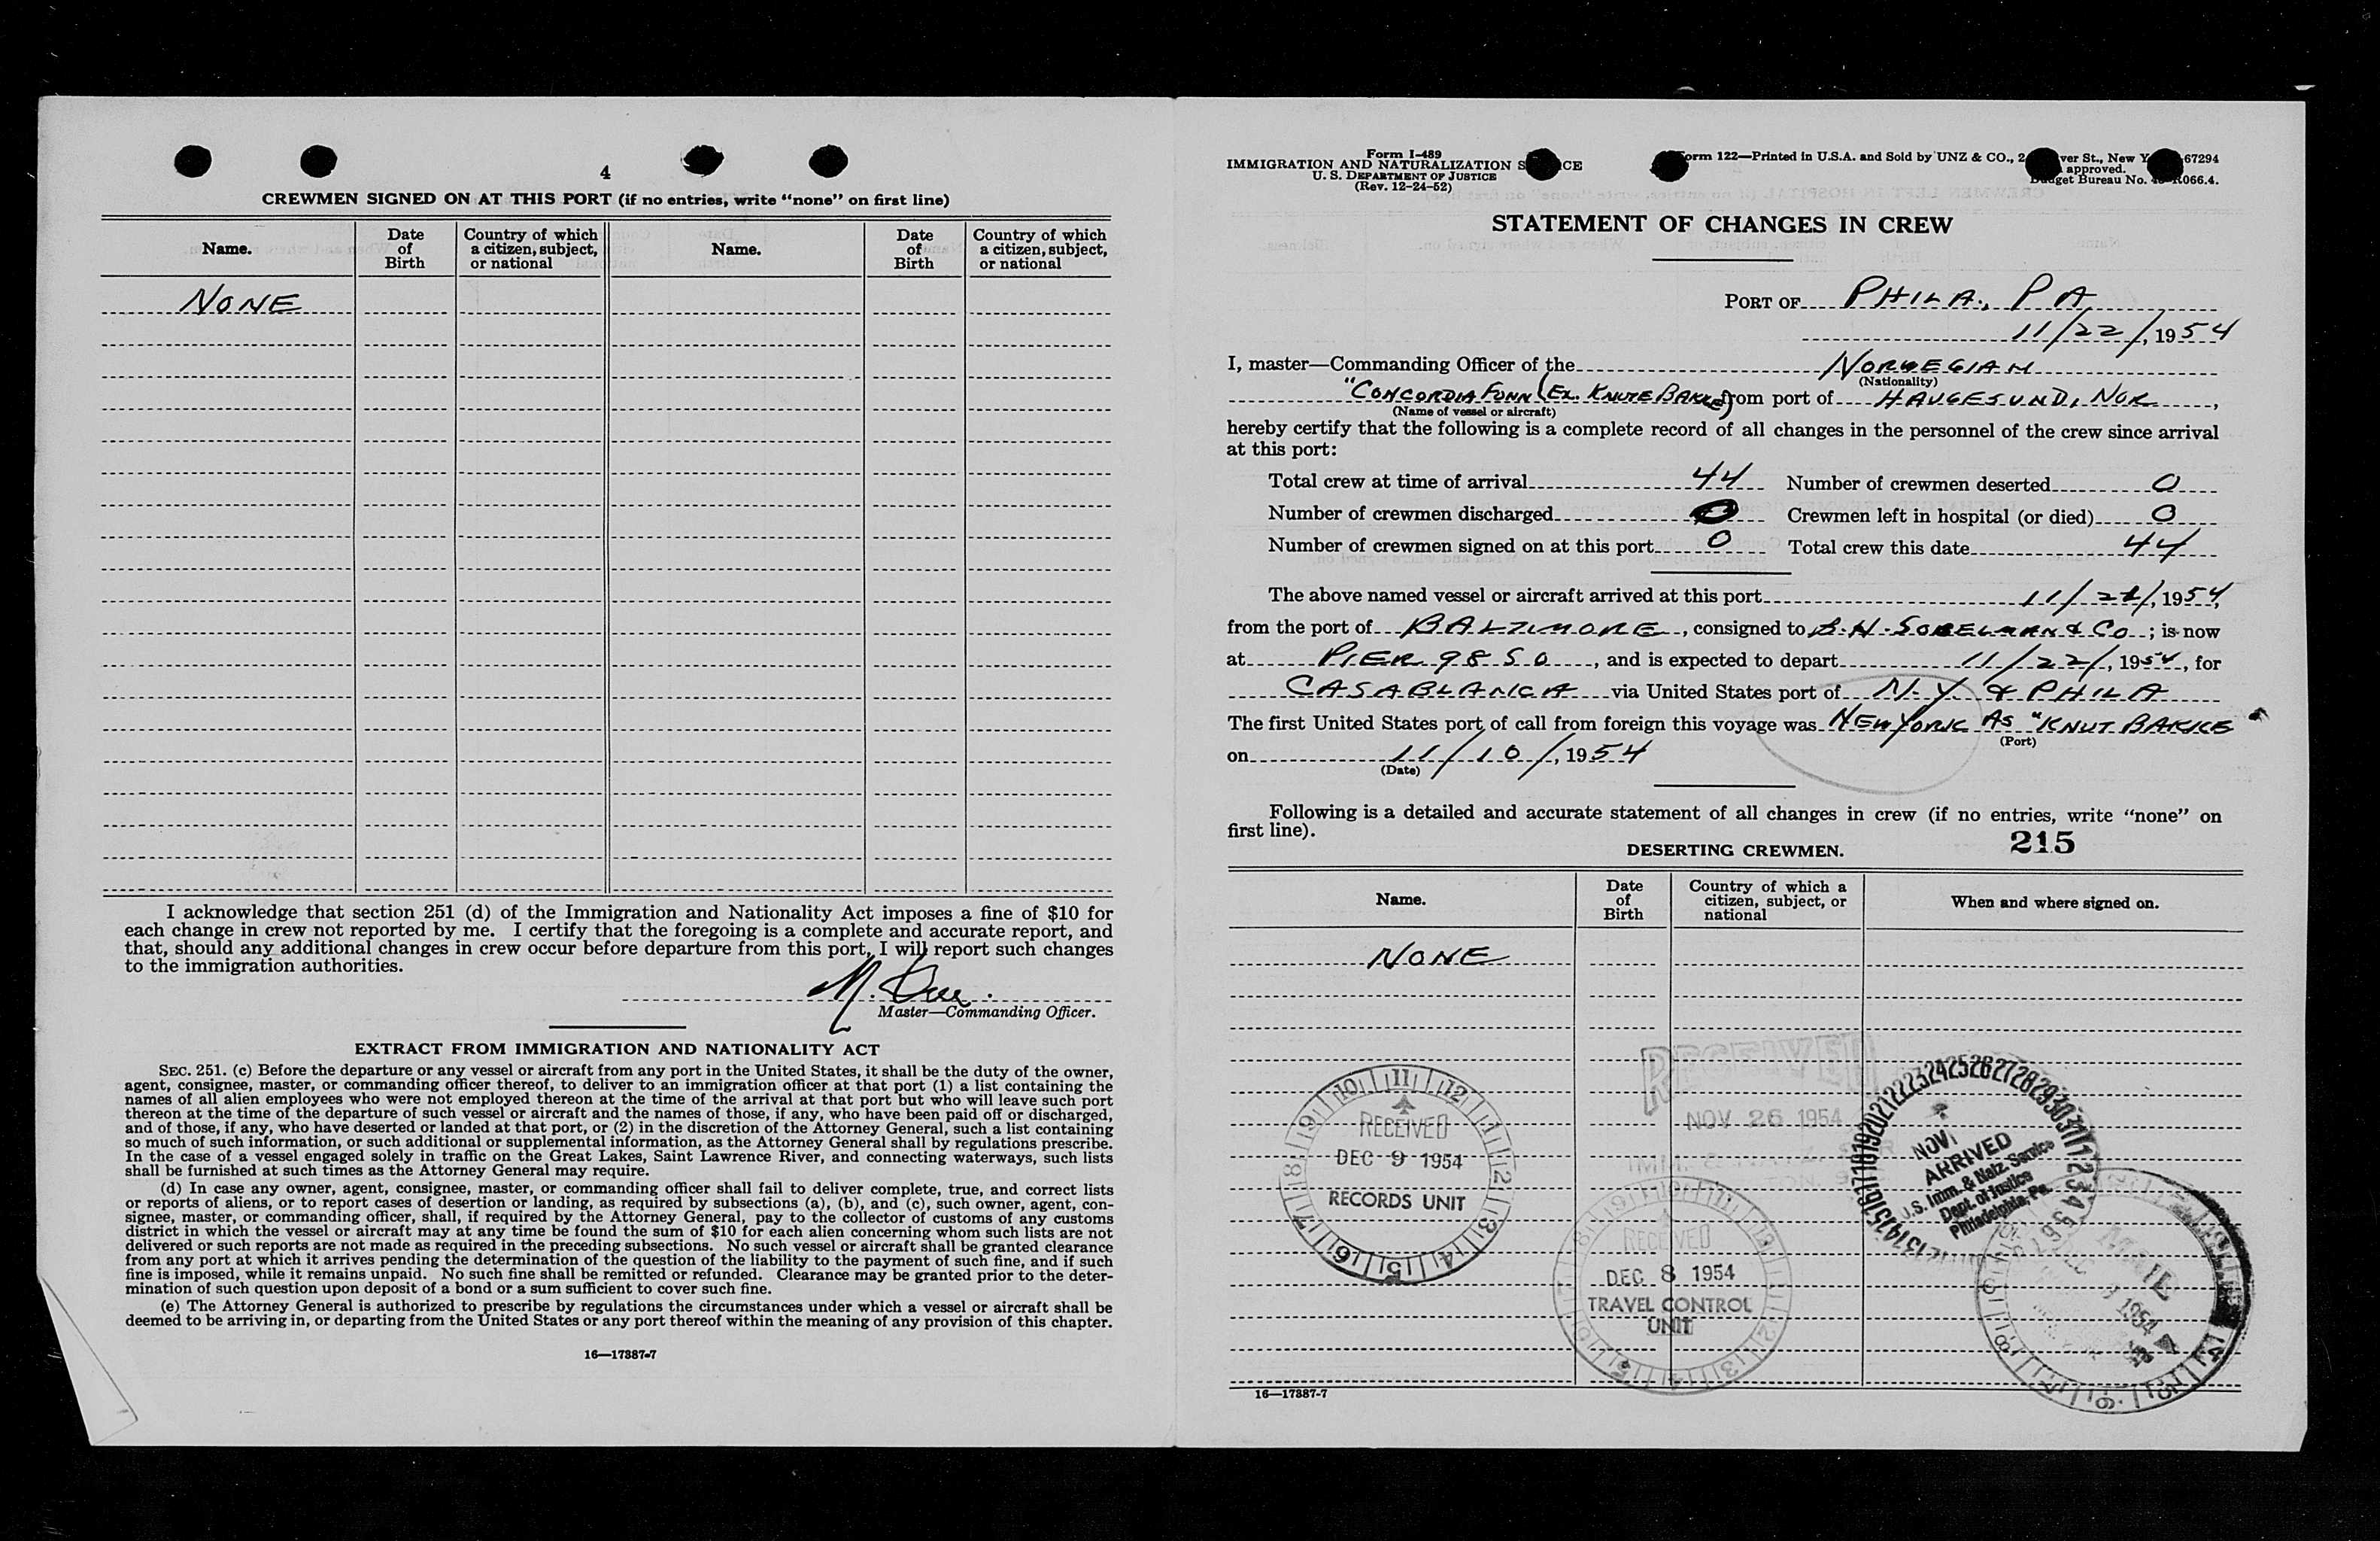 4
CREWMEN SIGNED ON AT THIS PORT (if no entries, write “none” on first line)
Name. Date of Birth Country of which a citizen, subject, or national Name. Date of Birth Country of which a citizen, subject, or national
NONE
I acknowledge that section 251 (d) of the Immigration and Nationality Act imposes a fine of $10 for
each change in crew not reported by me. I certify that the foregoing is a complete and accurate report, and
that, should any additional changes in crew occur before departure from this port, I will report such changes
to the immigration authorities.
Master—Commanding Officer.
EXTRACT FROM IMMIGRATION AND NATIONALITY ACT
SEC. 251. (c) Before the departure or any vessel or aircraft from any port in the United States, it shall be the duty of the owner,
agent, consignee, master, or commanding officer thereof, to deliver to an immigration officer at that port (1) a list containing the
names of all alien employees who were not employed thereon at the time of the arrival at that port but who will leave such port
thereon at the time of the departure of such vessel or aircraft and the names of those, if any, who have been paid off or discharged,
and of those, if any, who have deserted or landed at that port, or (2) in the discretion of the Attorney General, such a list containing
so much of such information, or such additional or supplemental information, as the Attorney General shall by regulations prescribe.
In the case of a vessel engaged solely in traffic on the Great Lakes, Saint Lawrence River, and connecting waterways, such lists
shall be furnished at such times as the Attorney General may require.
(d) In case any owner, agent, consignee, master, or commanding officer shall fail to deliver complete, true, and correct lists
or reports of aliens, or to report cases of desertion or landing, as required by subsections (a), (b), and (c), such owner, agent, con-
signee, master, or commanding officer, shall, if required by the Attorney General, pay to the collector of customs of any customs
district in which the vessel or aircraft may at any time be found the sum of $10 for each alien concerning whom such lists are not
delivered or such reports are not made as required in the preceding subsections. No such vessel or aircraft shall be granted clearance
from any port at which it arrives pending the determination of the question of the liability to the payment of such fine, and if such
fine is imposed, while it remains unpaid. No such fine shall be remitted or refunded. Clearance may be granted prior to the deter-
mination of such question upon deposit of a bond or a sum sufficient to cover such fine.
(e) The Attorney General is authorized to prescribe by regulations the circumstances under which a vessel or aircraft shall be
deemed to be arriving in, or departing from the United States or any port thereof within the meaning of any provision of this chapter.
16—17887-7
Form I-489
IMMIGRATION AND NATURALIZATION S CE
U. S. DEPARTMENT OF JUSTICE
(Rev. 12-24-52)
orm 122—Printed in U.S.A. and Sold by UNZ & CO., 2 ver St., New Y 67294
approved.
get Bureau No. 066.4.
STATEMENT OF CHANGES IN CREW
PORT OF PHILA., PA
11/22/, 1954
I, master—Commanding Officer of the NORWEGIAN
(Nationality)
"CONCORDIA FONN (EX. KNUTE BAKKE) from port of HAUGESUND, NOR,
(Name of vessel or aircraft)
hereby certify that the following is a complete record of all changes in the personnel of the crew since arrival
at this port:
Total crew at time of arrival 44 Number of crewmen deserted 0
Number of crewmen discharged 0 Crewmen left in hospital (or died) 0
Number of crewmen signed on at this port 0 Total crew this date 44
The above named vessel or aircraft arrived at this port 11/21/, 1954,
from the port of BALTIMORE, consigned to B.H. SOBELMAN & CO; is now
at PIER 98 SO, and is expected to depart 11/22/, 1954, for
CASABLANCA via United States port of N.Y & PHILA
The first United States port of call from foreign this voyage was NEW YORK AS "KNUT BAKKE"
(Port)
on 11/10/, 1954
(Date)
Following is a detailed and accurate statement of all changes in crew (if no entries, write “none” on
first line).
215
DESERTING CREWMEN.
Name. Date of Birth Country of which a citizen, subject, or national When and where signed on.
NONE
RECEIVED
NOV 26 1954
RECEIVED
DEC 9 1954
RECORDS UNIT
RECEIVED
DEC 8 1954
TRAVEL CONTROL
UNIT
NOV
ARRIVED
U.S. Imm. & Natz. Service
Dept. of Justice
Philadelphia, Pa.
1954
16—17887-7